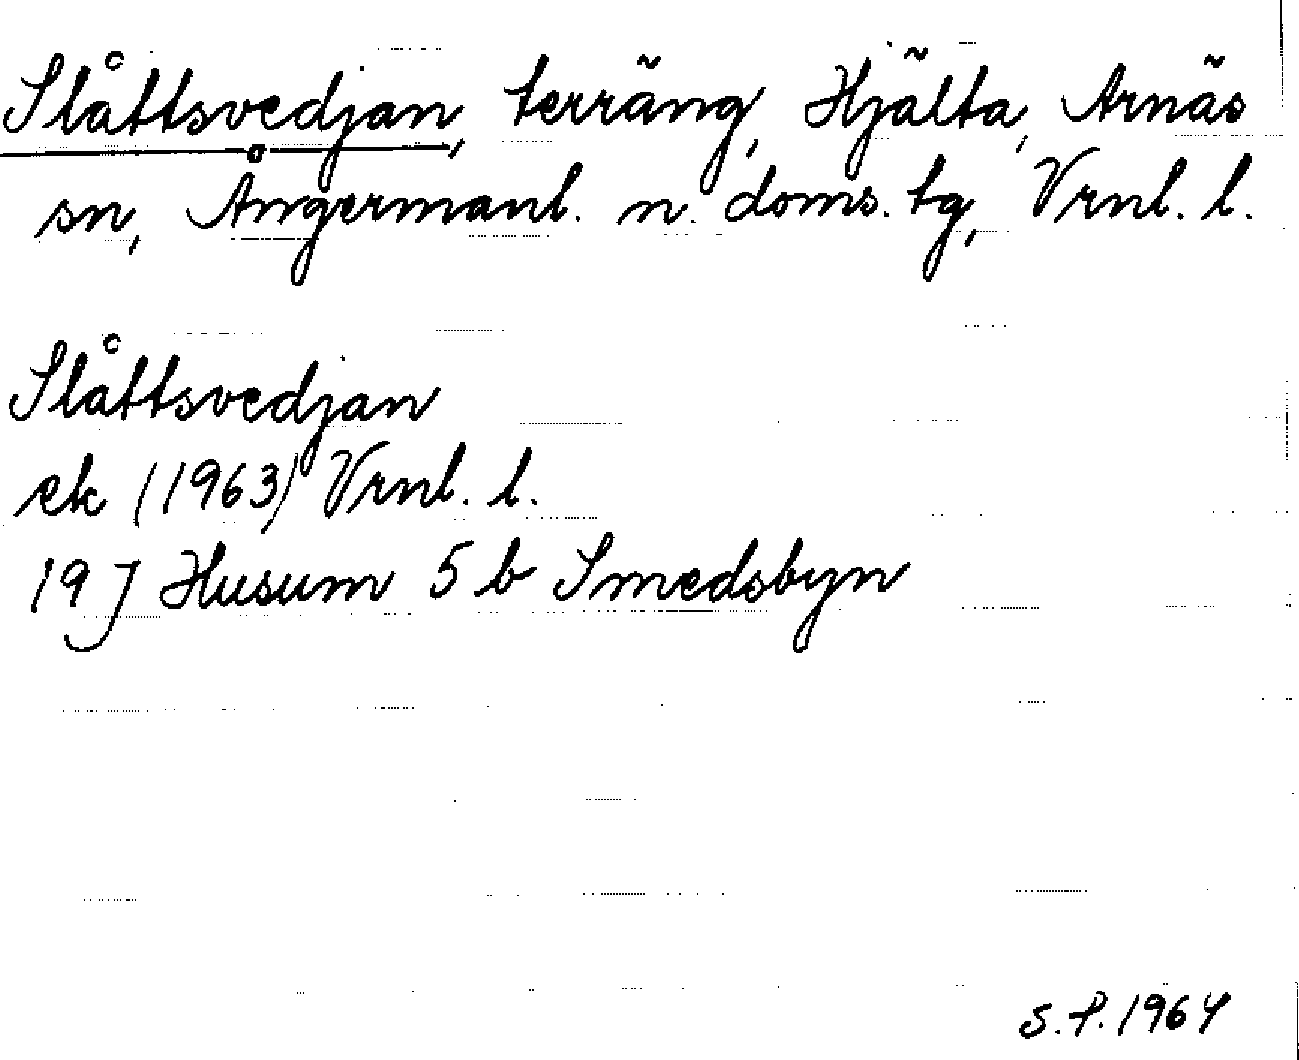 Slåttsvedjan, terräng, Hjälta, Arnäs
sn, Ångermanl. n. doms. tg, Vrnl. l.
Slåttsvedjan
ek (1963) Vrnl. l.
19 J Husum 5 b Smedsbyn
S.P. 1964